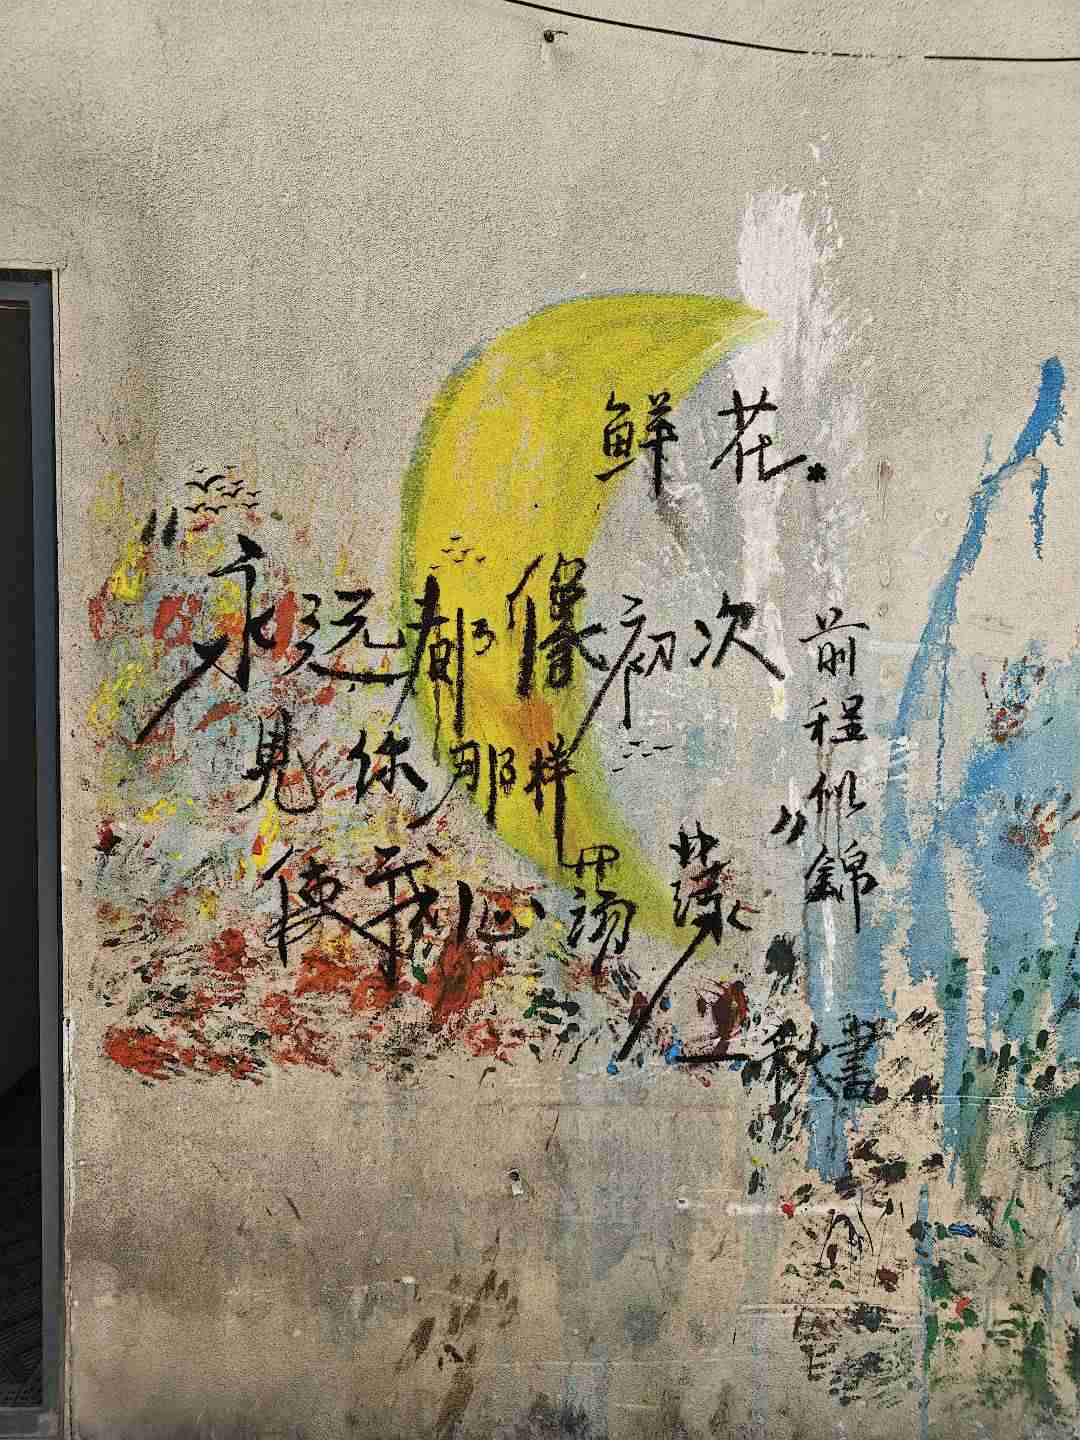 鲜花.
"永远都像初次
見你那样
使我心蕩漾"
前程似錦
秋書